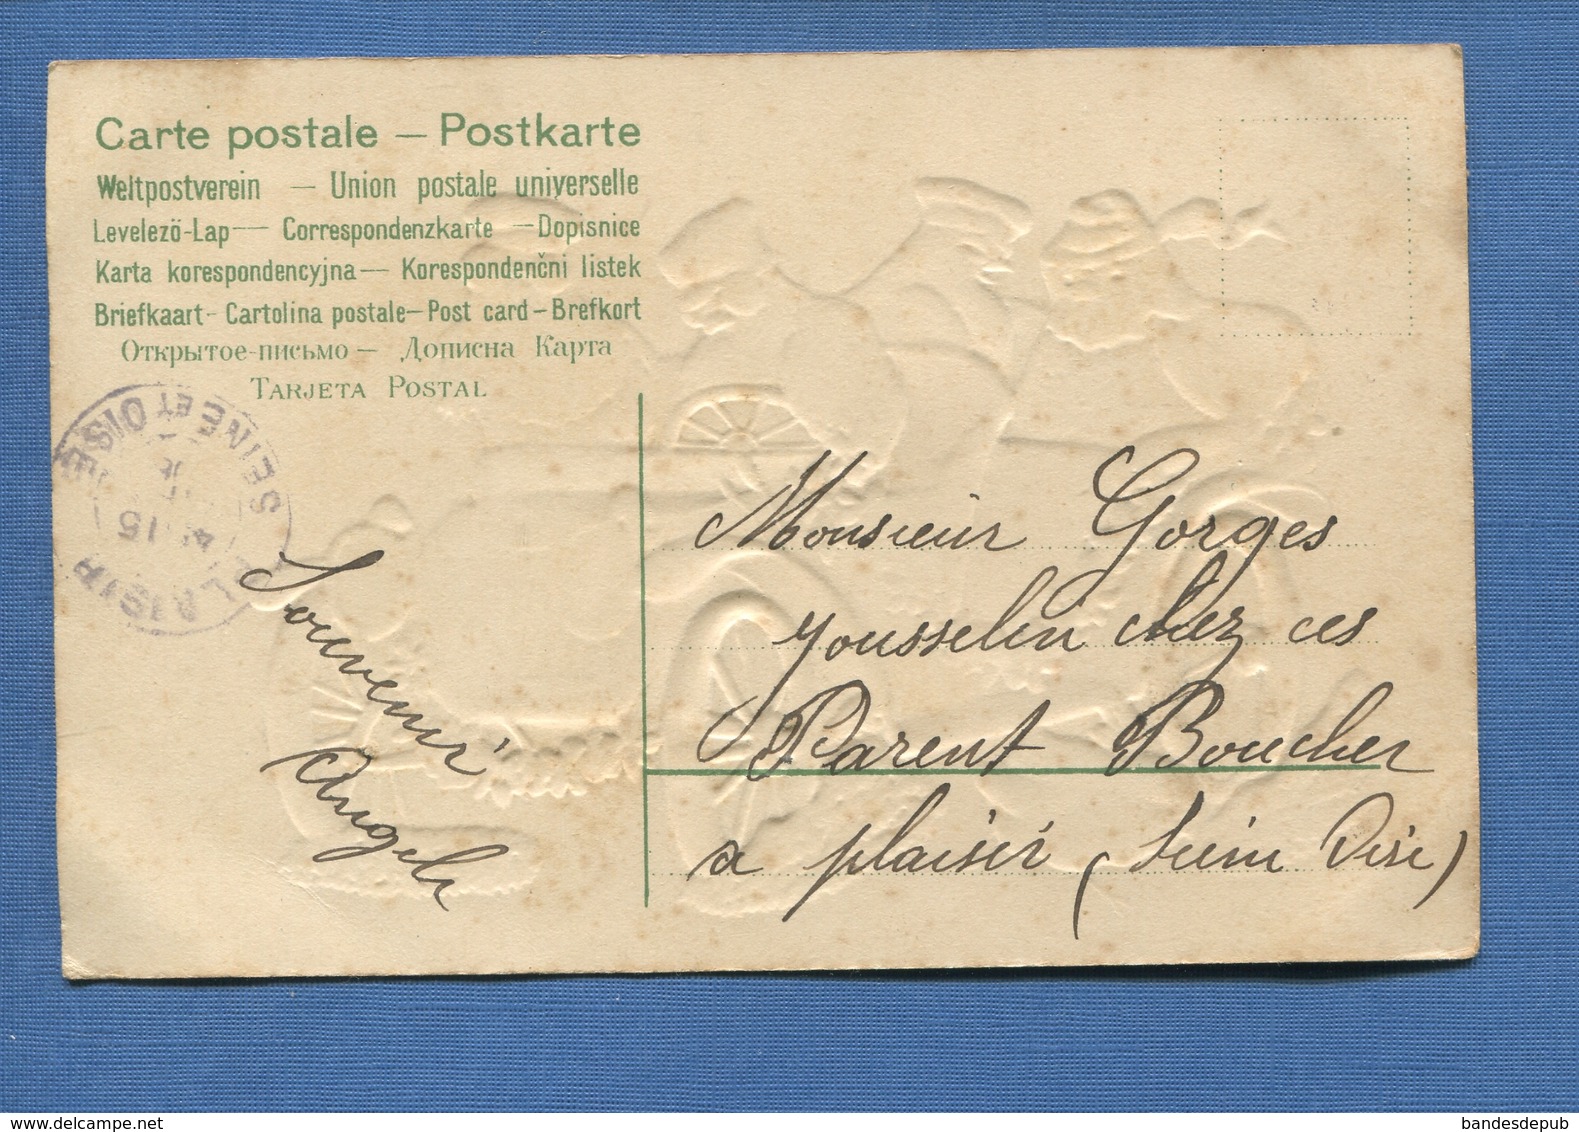 Carte postale — Postkarte
Weltpostverein — Union postale universelle
Levelező-Lap — Correspondenzkarte — Dopisnice
Karta korespondencyjna — Korespondenčni listek
Briefkaart - Cartolina postale — Post card - Brefkort
Открытое-письмо — Дописна Карта
TARJETA POSTAL
PLAISIR
SEINE ET OISE
4 15
Souvenir
Angele
Monsieur Gorges
Yousselin chez ces
Parent Boucher
a plaisir (Seine Oise)
delcampe.net
bandesdepub